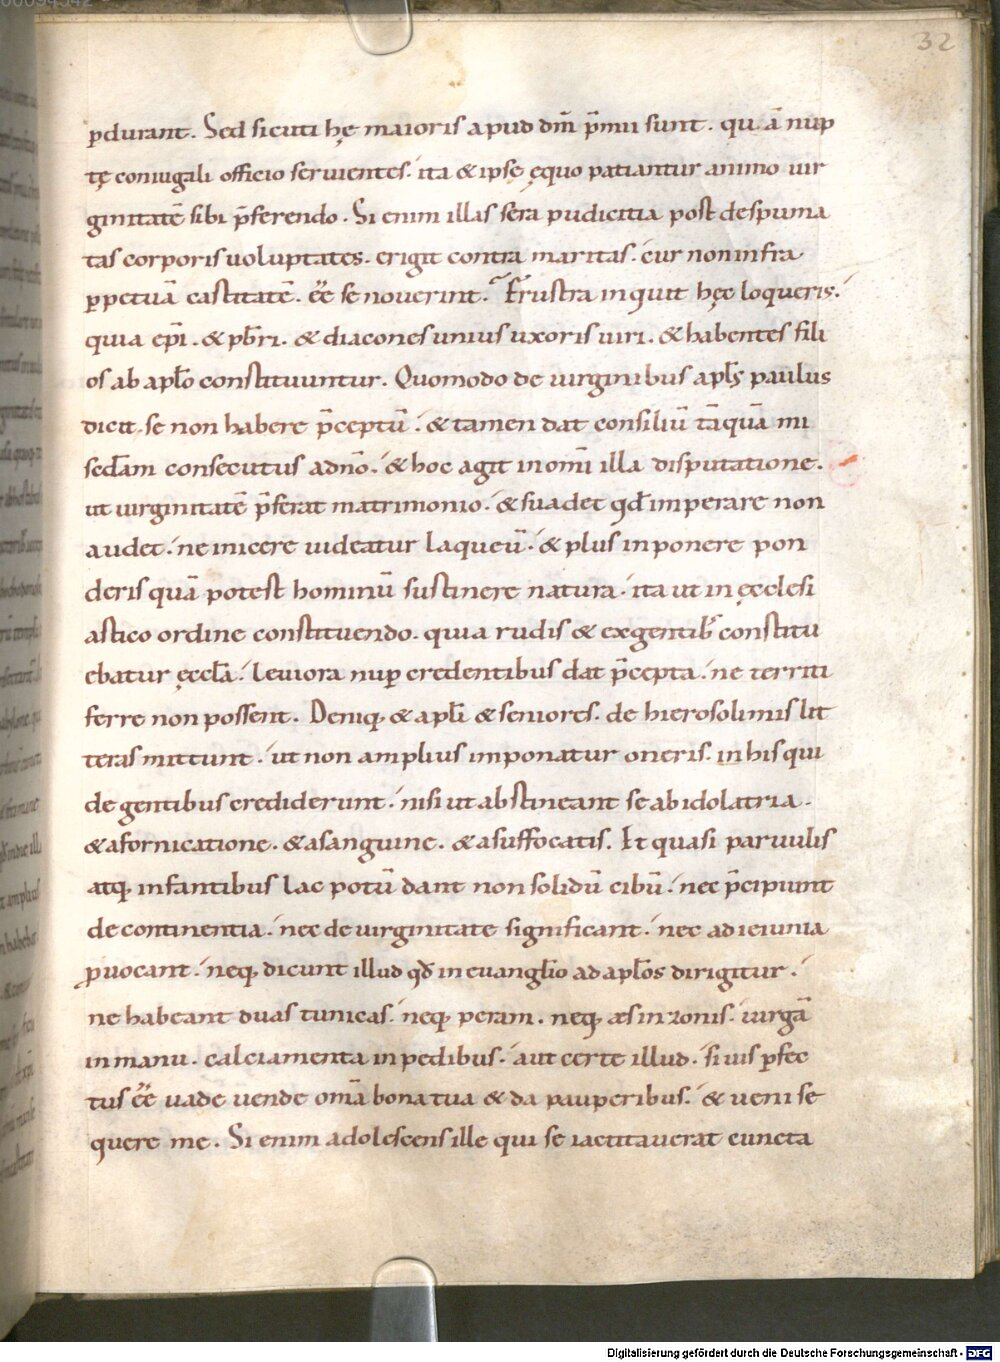 32
ꝑdurant. Sed sicuti hę maioris apud dm̄ p̄mii sunt. quā nup
tę coniugali officio seruientes. ita & ipsę ęquo patiantur animo uir
ginitatē sibi p̄ferendo. Si enim illas sera pudicitia post despuma
tas corporis uoluptates. erigit contra maritas. cur non infra
ꝑpetuā castitatē. ee̅ se nouerint. Frustra inquit hęc loqueris.
quia ep̄i. & pb̄ri. & diacones unius uxoris uiri. & habentes fili
os ab apl̄o constituuntur. Quomodo de uirginibus apl̄s paulus
dicit se non habere p̄ceptū. & tamen dat consiliū tāquā mi
sedam consecutus a dn̄o. & hoc agit in om̄i illa disputatione.
ut uirginitatē p̄ferat matrimonio. & suadet qd̄ imperare non
audet. ne inicere uideatur laqueū. & plus inponere pon
deris quā potest hominū sustinere natura. ita ut in ęcclesi
astico ordine constituendo. quia rudis & ex gentib; constitu
ebatur ęccl̄a. leuiora nuꝑ credentibus dat p̄cepta. ne territi
ferre non possent. Deniq; & apl̄i & seniores. de hierosolimis lit
teras mittunt. ut non amplius imponatur oneris. in his qui
de gentibus crediderunt. nisi ut abstineant se ab idolatria.
& a fornicatione. & a sanguine. & a suffocatis. Et quasi paruulis
atq; infantibus lac potū dant non solidū cibū. nec p̄cipiunt
de continentia. nec de uirginitate significant. nec ad ieiunia
ꝓuocant. neq; dicunt illud qd̄ in euangl̄io ad apl̄os dirigitur.
ne habeant duas tunicas. neq; peram. neq; æs in zonis. uirgā
in manu. calciamenta in pedibus. aut certe illud. si uis ꝑfec
tus ee̅ uade uende om̄a bona tua & da pauperibus. & ueni se
quere me. Si enim adolescens ille qui se iactitauerat cuncta
Digitalisierung gefördert durch die Deutsche Forschungsgemeinschaft - DFG